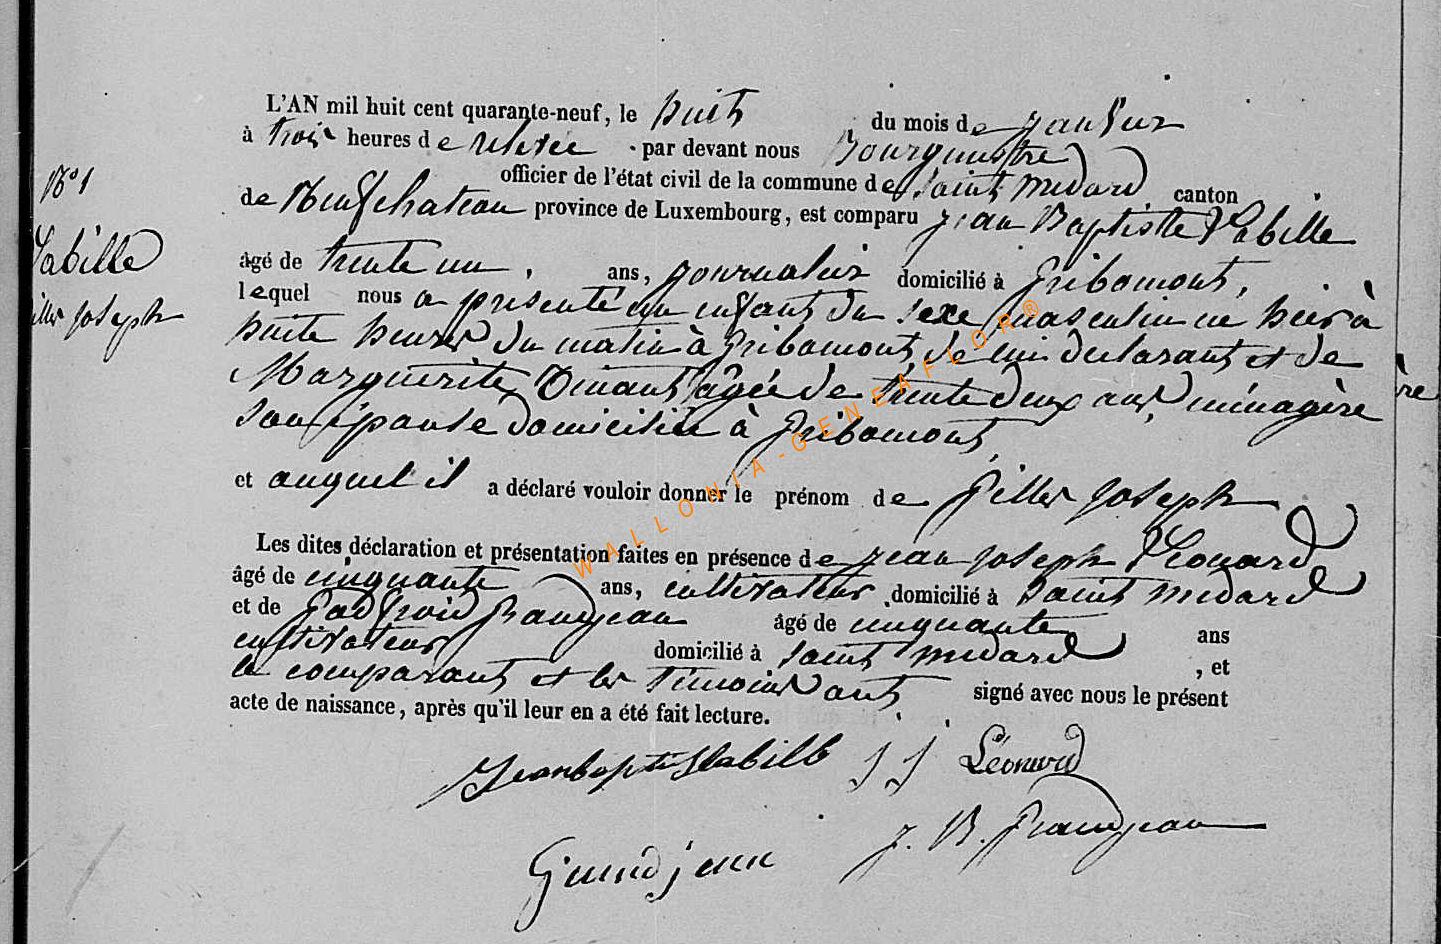 L'AN mil huit cent quarante-neuf, le huit du mois de janvier
à trois heures de relevée par devant nous Bourgmestre
officier de l'état civil de la commune de Saint Médard canton
de Neufchateau province de Luxembourg, est comparu Jean Baptiste Labille
âgé de trente un ans, journalier domicilié à Gribomont,
lequel nous a présenté un enfant du sexe masculin né hier à
huite heures du matin à Gribomont, de lui declarant et de
Marguerite Dinant âgée de trente deux ans, ménagère
son épouse domiciliée à Gribomont
et auquel il a déclaré vouloir donner le prénom de Gilles Joseph
Les dites déclaration et présentation faites en présence de Jean Joseph Léonard
âgé de cinquante ans, cultivateur domicilié à Saint Médard
et de Godfroid Grandjean âgé de cinquante ans
cultivateur domicilié à Saint Médard, et
le comparant et les témoins ont signé avec nous le présent
acte de naissance, après qu'il leur en a été fait lecture.
Jean bapti Labille J J Léonard
J. B. Grandjean
Grandjean
N° 1
Labille
Gilles Joseph
WALLONIA-GENEAFLOR®